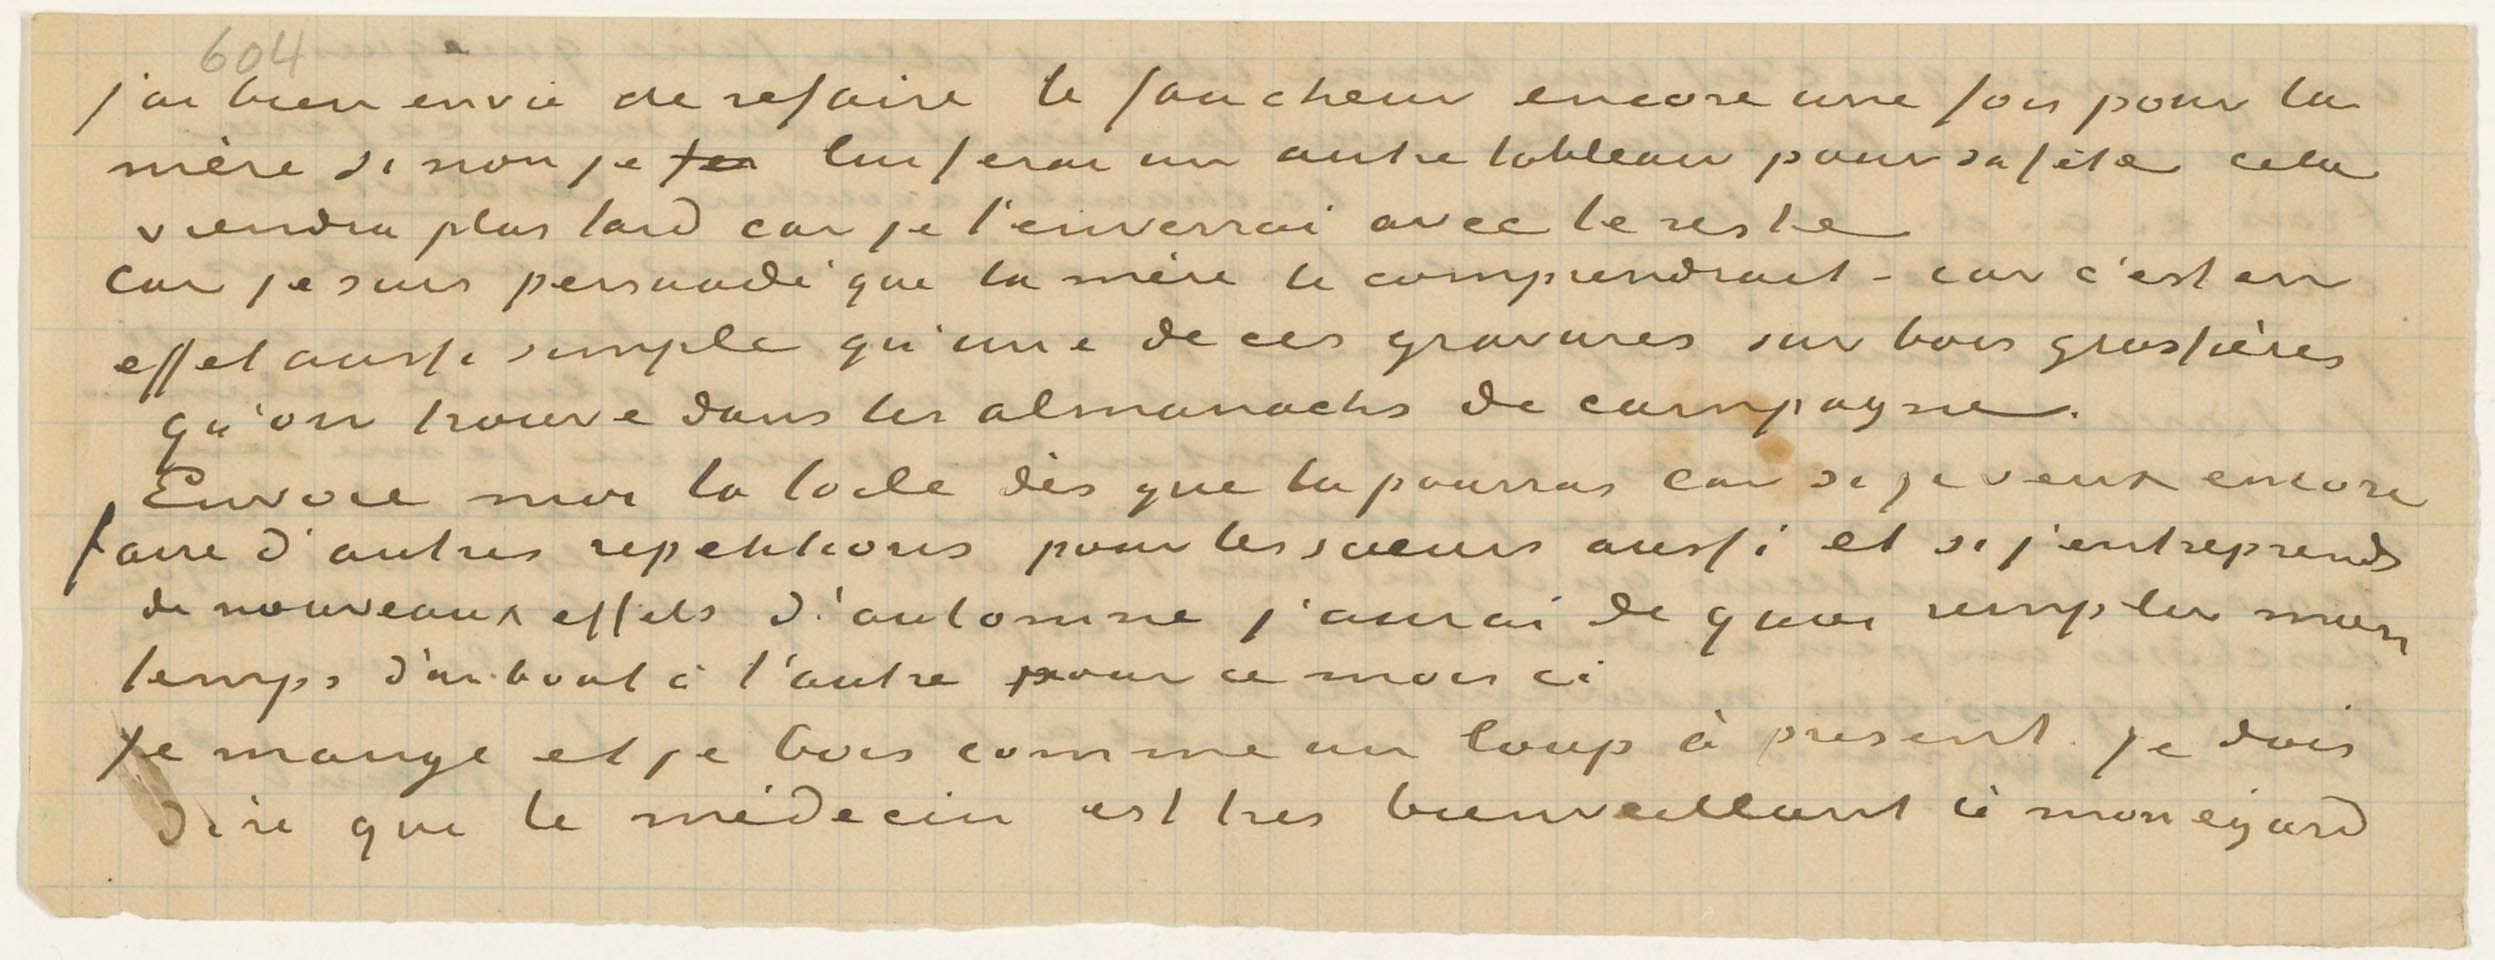 604
j'ai bien envie de refaire le faucheur encore une fois pour la
mère si non je fer lui ferai un autre tableau pour sa fête cela
viendra plus tard car je l'enverrai avec le reste
Car je suis persuadé que la mère le comprendrait – car c'est en
effet aussi simple qu'une de ces gravures sur bois grossières
qu'on trouve dans les almanachs de campagne.
Envoie moi la toile dès que tu pourras car si je veux encore
faire d'autres repetitions pour les soeurs aussi et si j'entreprends
de nouveaux effets d'automne j'aurai de quoi remplir mon
temps d'un bout à l'autre pour ce mois ci
Je mange et je bois comme un loup à present. je dois
dire que le médecin est tres bienveillant à mon egard